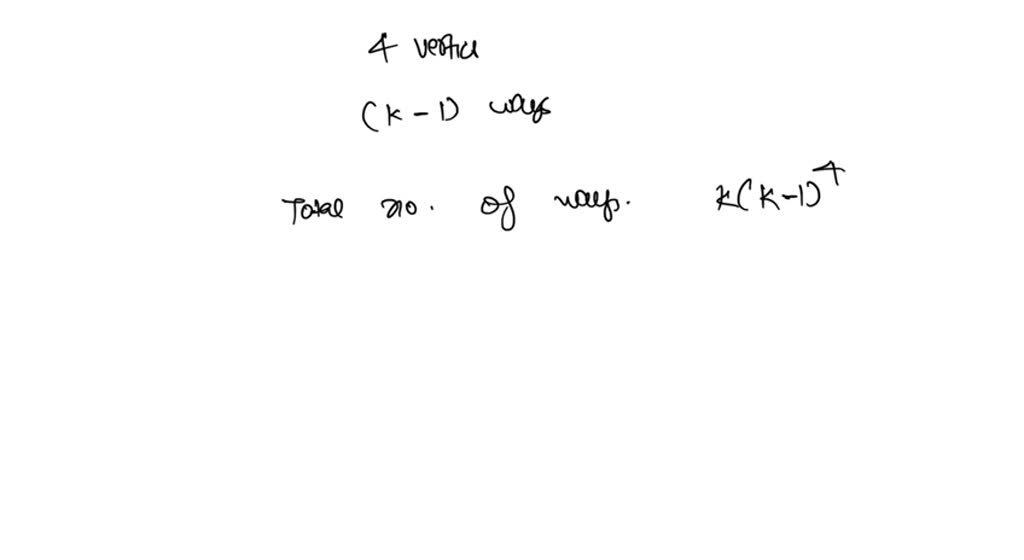 4 vertice
(k-1) ways
Total no. of ways. k(k-1)^4